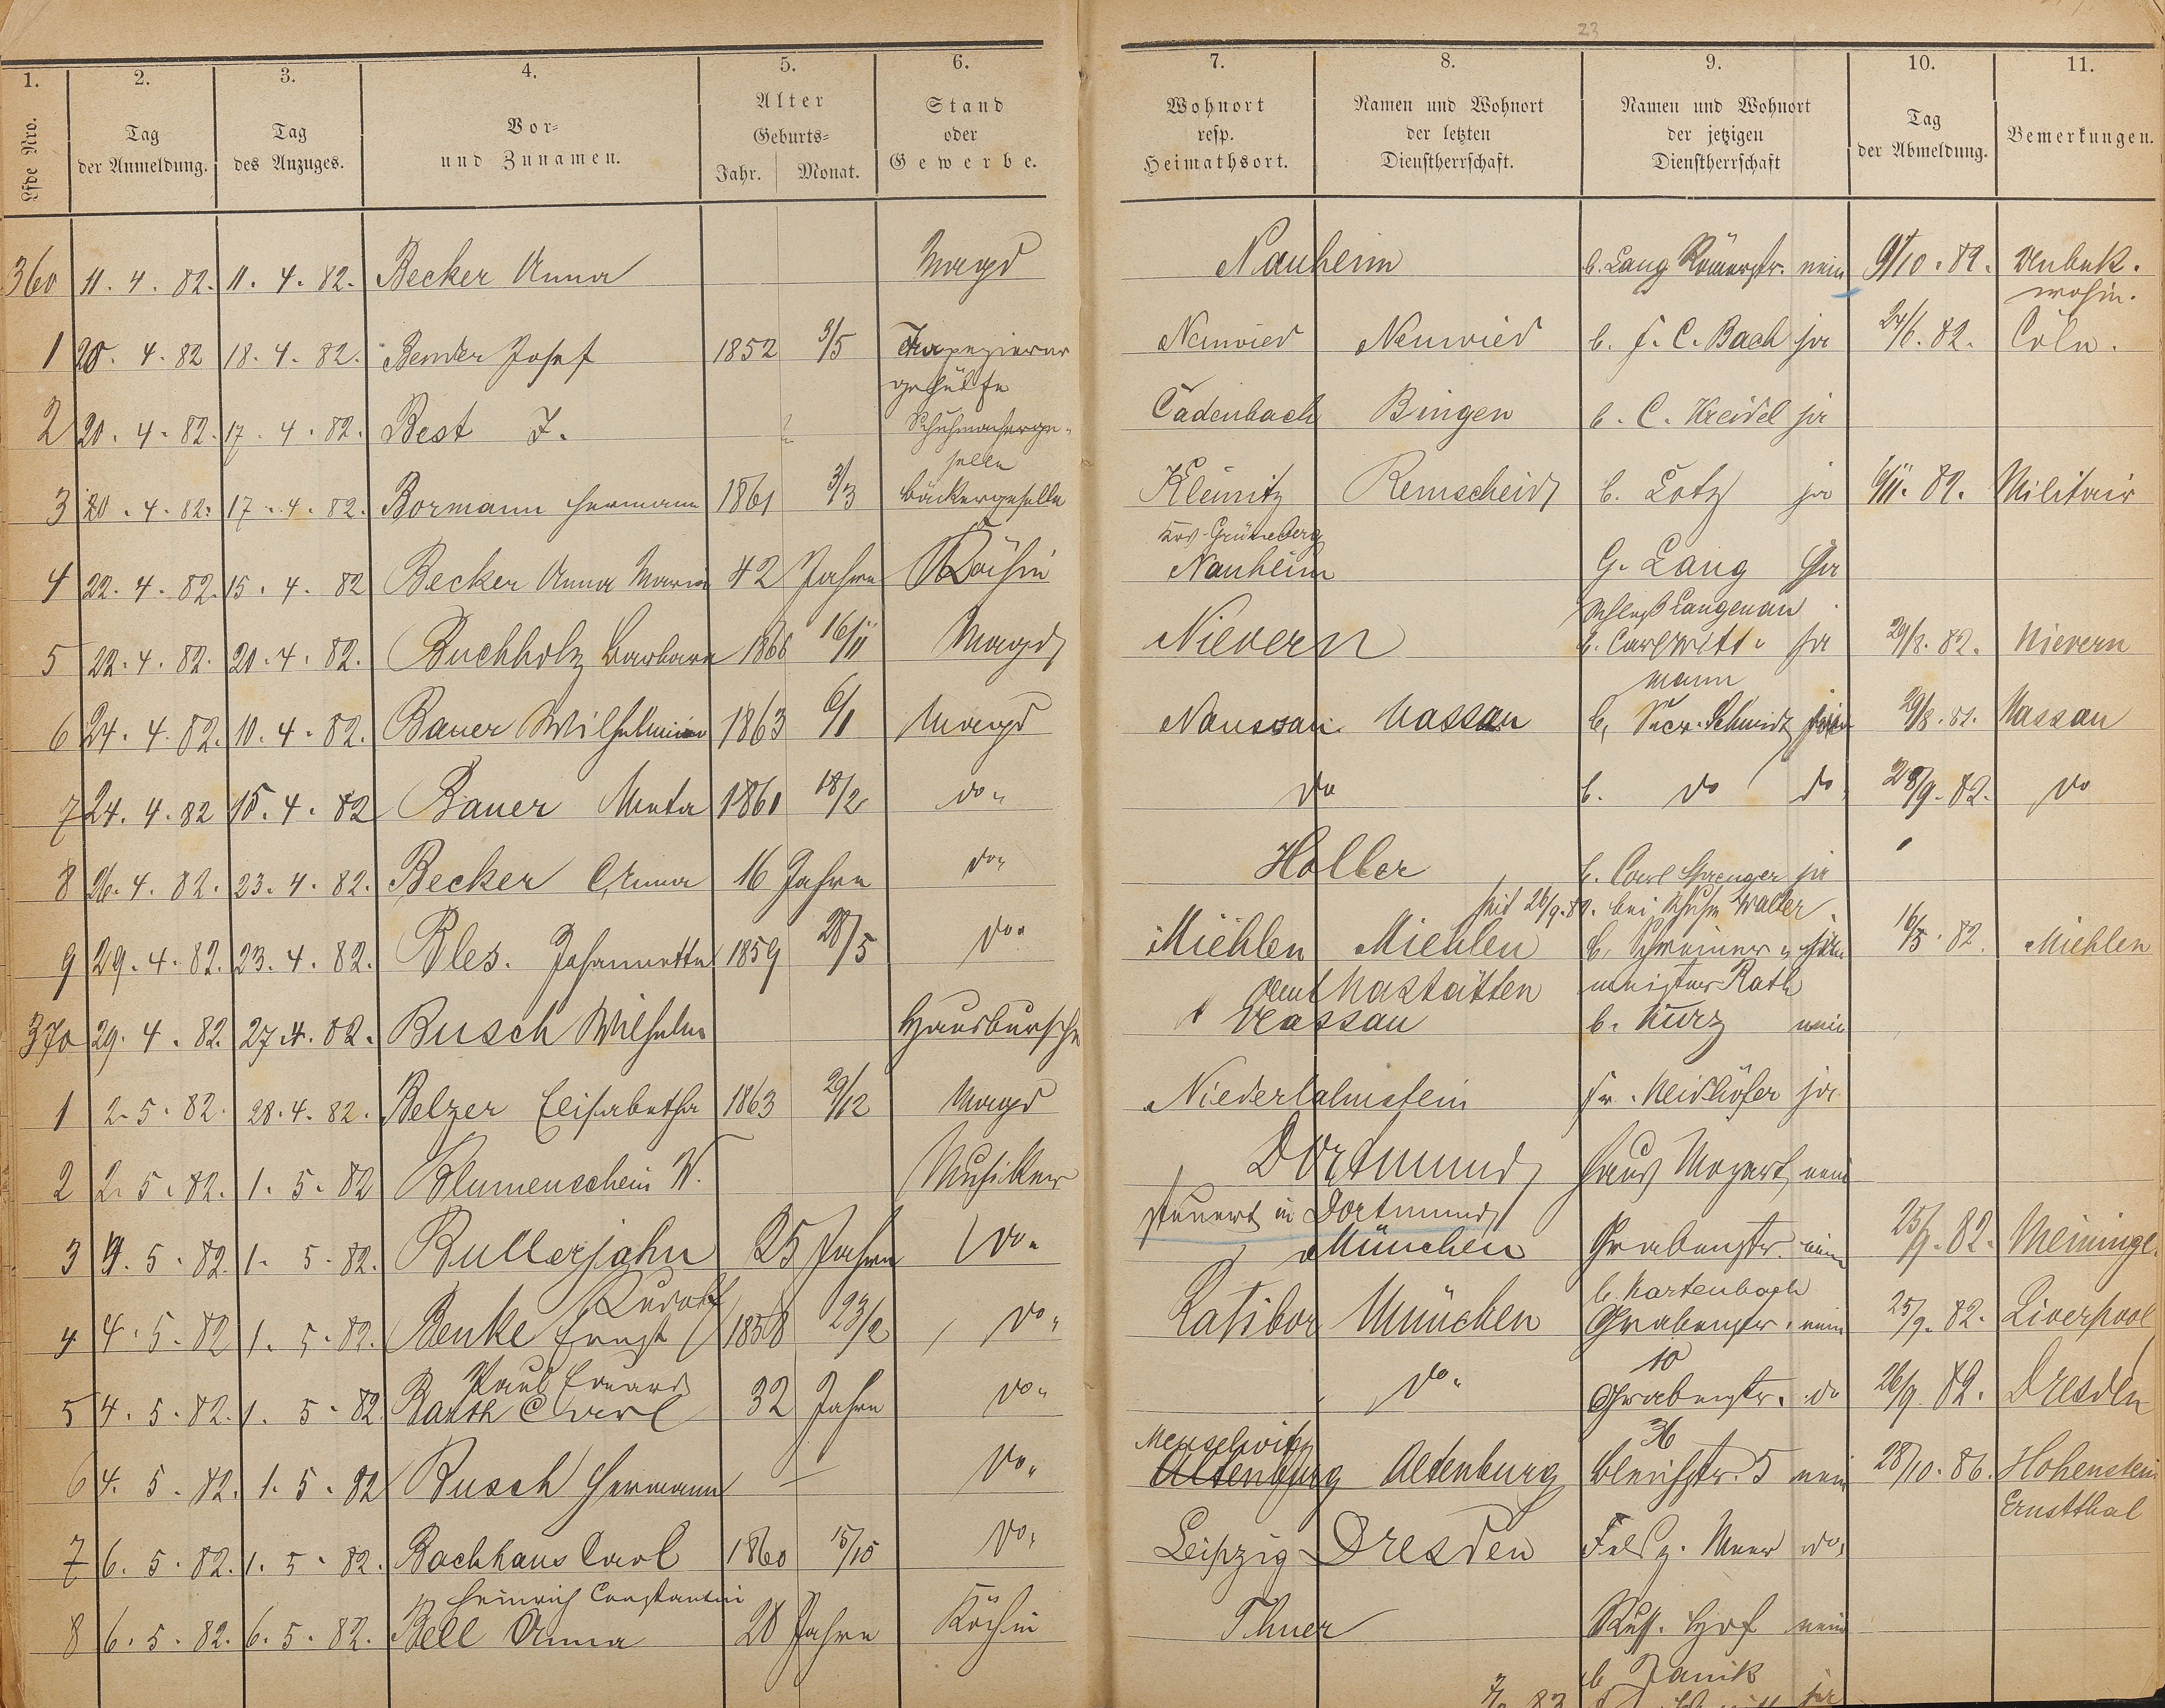 23
1. 2. 3. 4. 5. 6. 7. 8. 9. 10. 11.
Lfde Nro. Tag der Anmeldung. Tag des Anzuges. Vor- und Zunamen. Alter Geburts- Jahr. Monat. Stand oder Gewerbe. Wohnort resp. Heimathsort. Namen und Wohnort der letzten Dienstherrschaft. Namen und Wohnort der jetzigen Dienstherrschaft Tag der Abmeldung. Bemerkungen.
360 11. 4. 82. 11. 4. 82. Becker Anna Magd Nauheim b. Lang Römerstr. nein 9/10. 82. Unbek.
wohin.
1 20. 4. 82 18. 4. 82. Bender Josef 1852 3/5 Tapezierer Neuwied Neuwied b. F. C. Bach ja 24/6. 82. Cöln.
gehülfe
2 20. 4. 82. 17. 4. 82. Best J. Schuhmacherge- Cadenbach Bingen b. C. Kreidel ja
selle
3 20. 4. 82. 17. 4. 82. Bormann Hermann 1861 3/3 Bäckergeselle Kleinitz Remscheid b. Lotz ja 6/11. 82. Militair
Krs. Grüneberg
4 22. 4. 82. 15. 4. 82 Becker Anna Maria 42 Jahre Köchin Nauheim G. Lang Ja
Schloß Langenau
5 22. 4. 82. 20. 4. 82. Buchholz Barbara 1866 16/11 Magd Nievern b. Carl Witt- ja 29/8. 82. Nievern
mann
6 24. 4. 82. 10. 4. 82. Bauer Wilhelmine 1863 6/1 Magd Nassau Nassau b. Secr. Schmidt 29/8. 82. Nassau
7 24. 4. 82 15. 4. 82 Bauer Meta 1861 18/2 do. do b. do do 28/9. 82. do
8 26. 4. 82. 23. 4. 82. Becker Anna 16 Jahre do. Holler b. Carl Sprenger ja
seit 26/9. 82. bei Walter
9 29. 4. 82. 23. 4. 82. Bles. Johannette 1859 28/5 do. Miehlen Miehlen b. Schreiner- 16/5. 82. Miehlen
Amt Nastätten meister Rath
370 29. 4. 82. 27. 4. 82. Busch Wilhelm Hausbursche Nassau b. Kurz nein
1 2. 5. 82. 28. 4. 82. Belzer Elisabetha 1863 29/12 Magd Niederlahnstein Fr. Neidhöfer ja
2 2. 5. 82. 1. 5. 82 Blumenschein W. Musiker Dortmund Haus Mozart nein
steuert in Dortmund
3 4. 5. 82. 1. 5. 82. Bullerjahn 25 Jahre do. München Grabenstr. nein 25/9. 82. Meininge.
Rudolf b. Kartenbach
4 4. 5. 82 1. 5. 82. Benke Ernst 1858 23/2 do. Ratibor München Grabenstr. nein 25/9. 82. Liverpool
Paul Eduard 10
5 4. 5. 82. 1. 5. 82. Barth Carl 32 Jahre do. do. Grabenstr. do 26/9. 82. Dresden
Meuselwitz 36
6 4. 5. 82. 1. 5. 82 Busch Hermann do. Altenburg Altenburg Bleichstr. 5 nein 28/10. 86. Hohenstein
Ernstthal
7 6. 5. 82. 1. 5. 82. Bachhaus Carl 1860 15/10 do. Leipzig Dresden Fels z. Meer do.
Heinrich Constantin
8 6. 5. 82. 6. 5. 82. Bell Anna 28 Jahre Köchin Thuer Russ. Hof nein
b Janik
83 ja